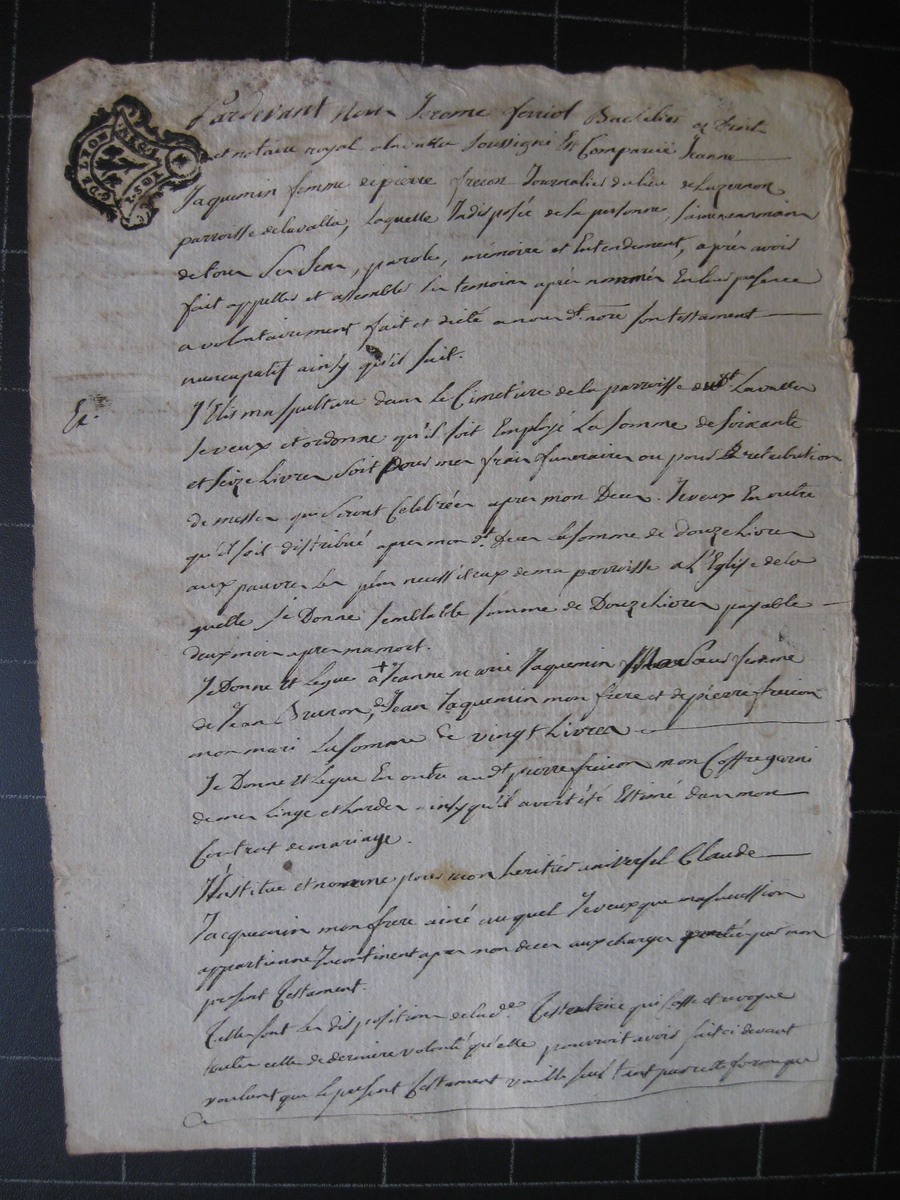 Pardevant Nous Jerome foriol Bachelier es Droit
et notaire royal a lavalla soussigné Est Comparüe Jeanne
Jaquemin femme de pierre frecon Journalier du lieu de Luzernon
parroisse de lavalla, laquelle Indisposée de sa personne, saine neanmoins
de tous ses sens, parole, mémoire et Entendement, après avoir
fait appeller et assembler les temoins après nommés En leur presence
a volontairement fait et dicté a nous dt. nore son testament
nuncupatif ainsy qu'il suit.
J'Elis ma sepulture dans le Cimetiere de la parroisse dudt. Lavalla
Je veux et ordonne qu'il soit Employé La somme de soixante
et seize Livres soit pour mes frais funeraires ou pour retribution
de messes qui seront Celebrées apres mon Deces. Je veux En outre
qu'il soit distribué apres mon dt. Deces La somme de douze Livres
aux pauvres les plus necessiteux de ma parroisse a L'Eglise de la
quelle Je Donne semblable somme de Douze Livres payable
deux mois apres ma mort.
Je Donne et Legue a Jeanne marie Jaquemin femme
de Jean Brunon, a Jean Jaquemin mon frere et de pierre frecon
mon mari La somme de vingt Livres
Je Donne et Legue En outre audt pierre frecon mon Coffre garni
de mes Linge et hardes ainsy qu'il avoit été Estimé dans mon
Contrat de mariage.
J'institue et nomme pour mon heritier universel Claude
Jacquemin mon frere ainé auquel Je veux que ma succession
appartienne Incontinent apres mon deces aux charges portées par mon
present testament.
Telles sont les dispositions de lade. Testatrice qui casse et revoque
toutes celle de derniere volonté qu'elle pourroit avoir fait ci devant
voulant que le present testament vaille seul tant par cette forme que